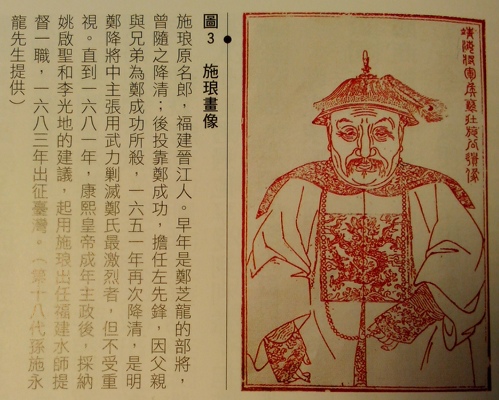 靖海將軍侯襄壯施公像
圖3 施琅畫像
施琅原名郎，福建晉江人。早年是鄭芝龍的部將，
曾隨之降清；後投靠鄭成功，擔任左先鋒，因父親
與兄弟為鄭成功所殺，一六五一年再次降清，是明
鄭降將中主張用武力剿滅鄭氏最激烈者，但不受重
視。直到一六八一年，康熙皇帝成年主政後，採納
姚啟聖和李光地的建議，起用施琅出任福建水師提
督一職，一六八三年出征臺灣。（第十八代孫施永
龍先生提供）